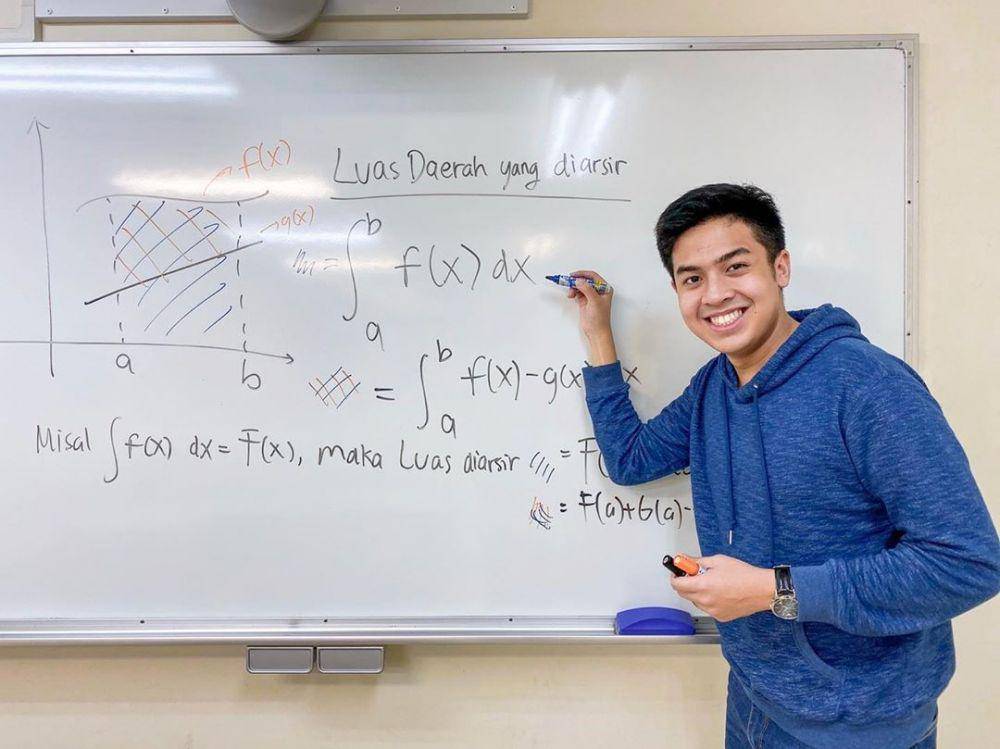 f(x)
Luas Daerah yang diarsir
g(x)
= ∫ₐᵇ f(x) dx
a b
= ∫ₐᵇ f(x)-g(x) x
Misal ∫f(x) dx = F(x), maka Luas diarsir = F(
= F(a)+G(a)-